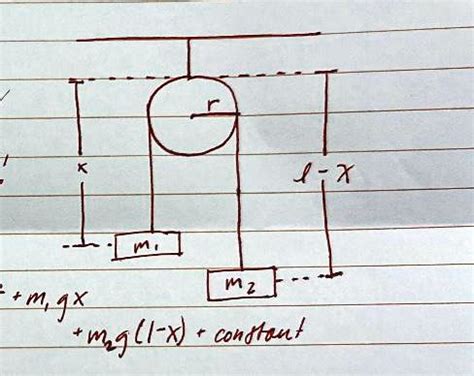 r
x
l - x
m₁
m₂
+ m₁ g x
+ m₂ g (l-x) + constant